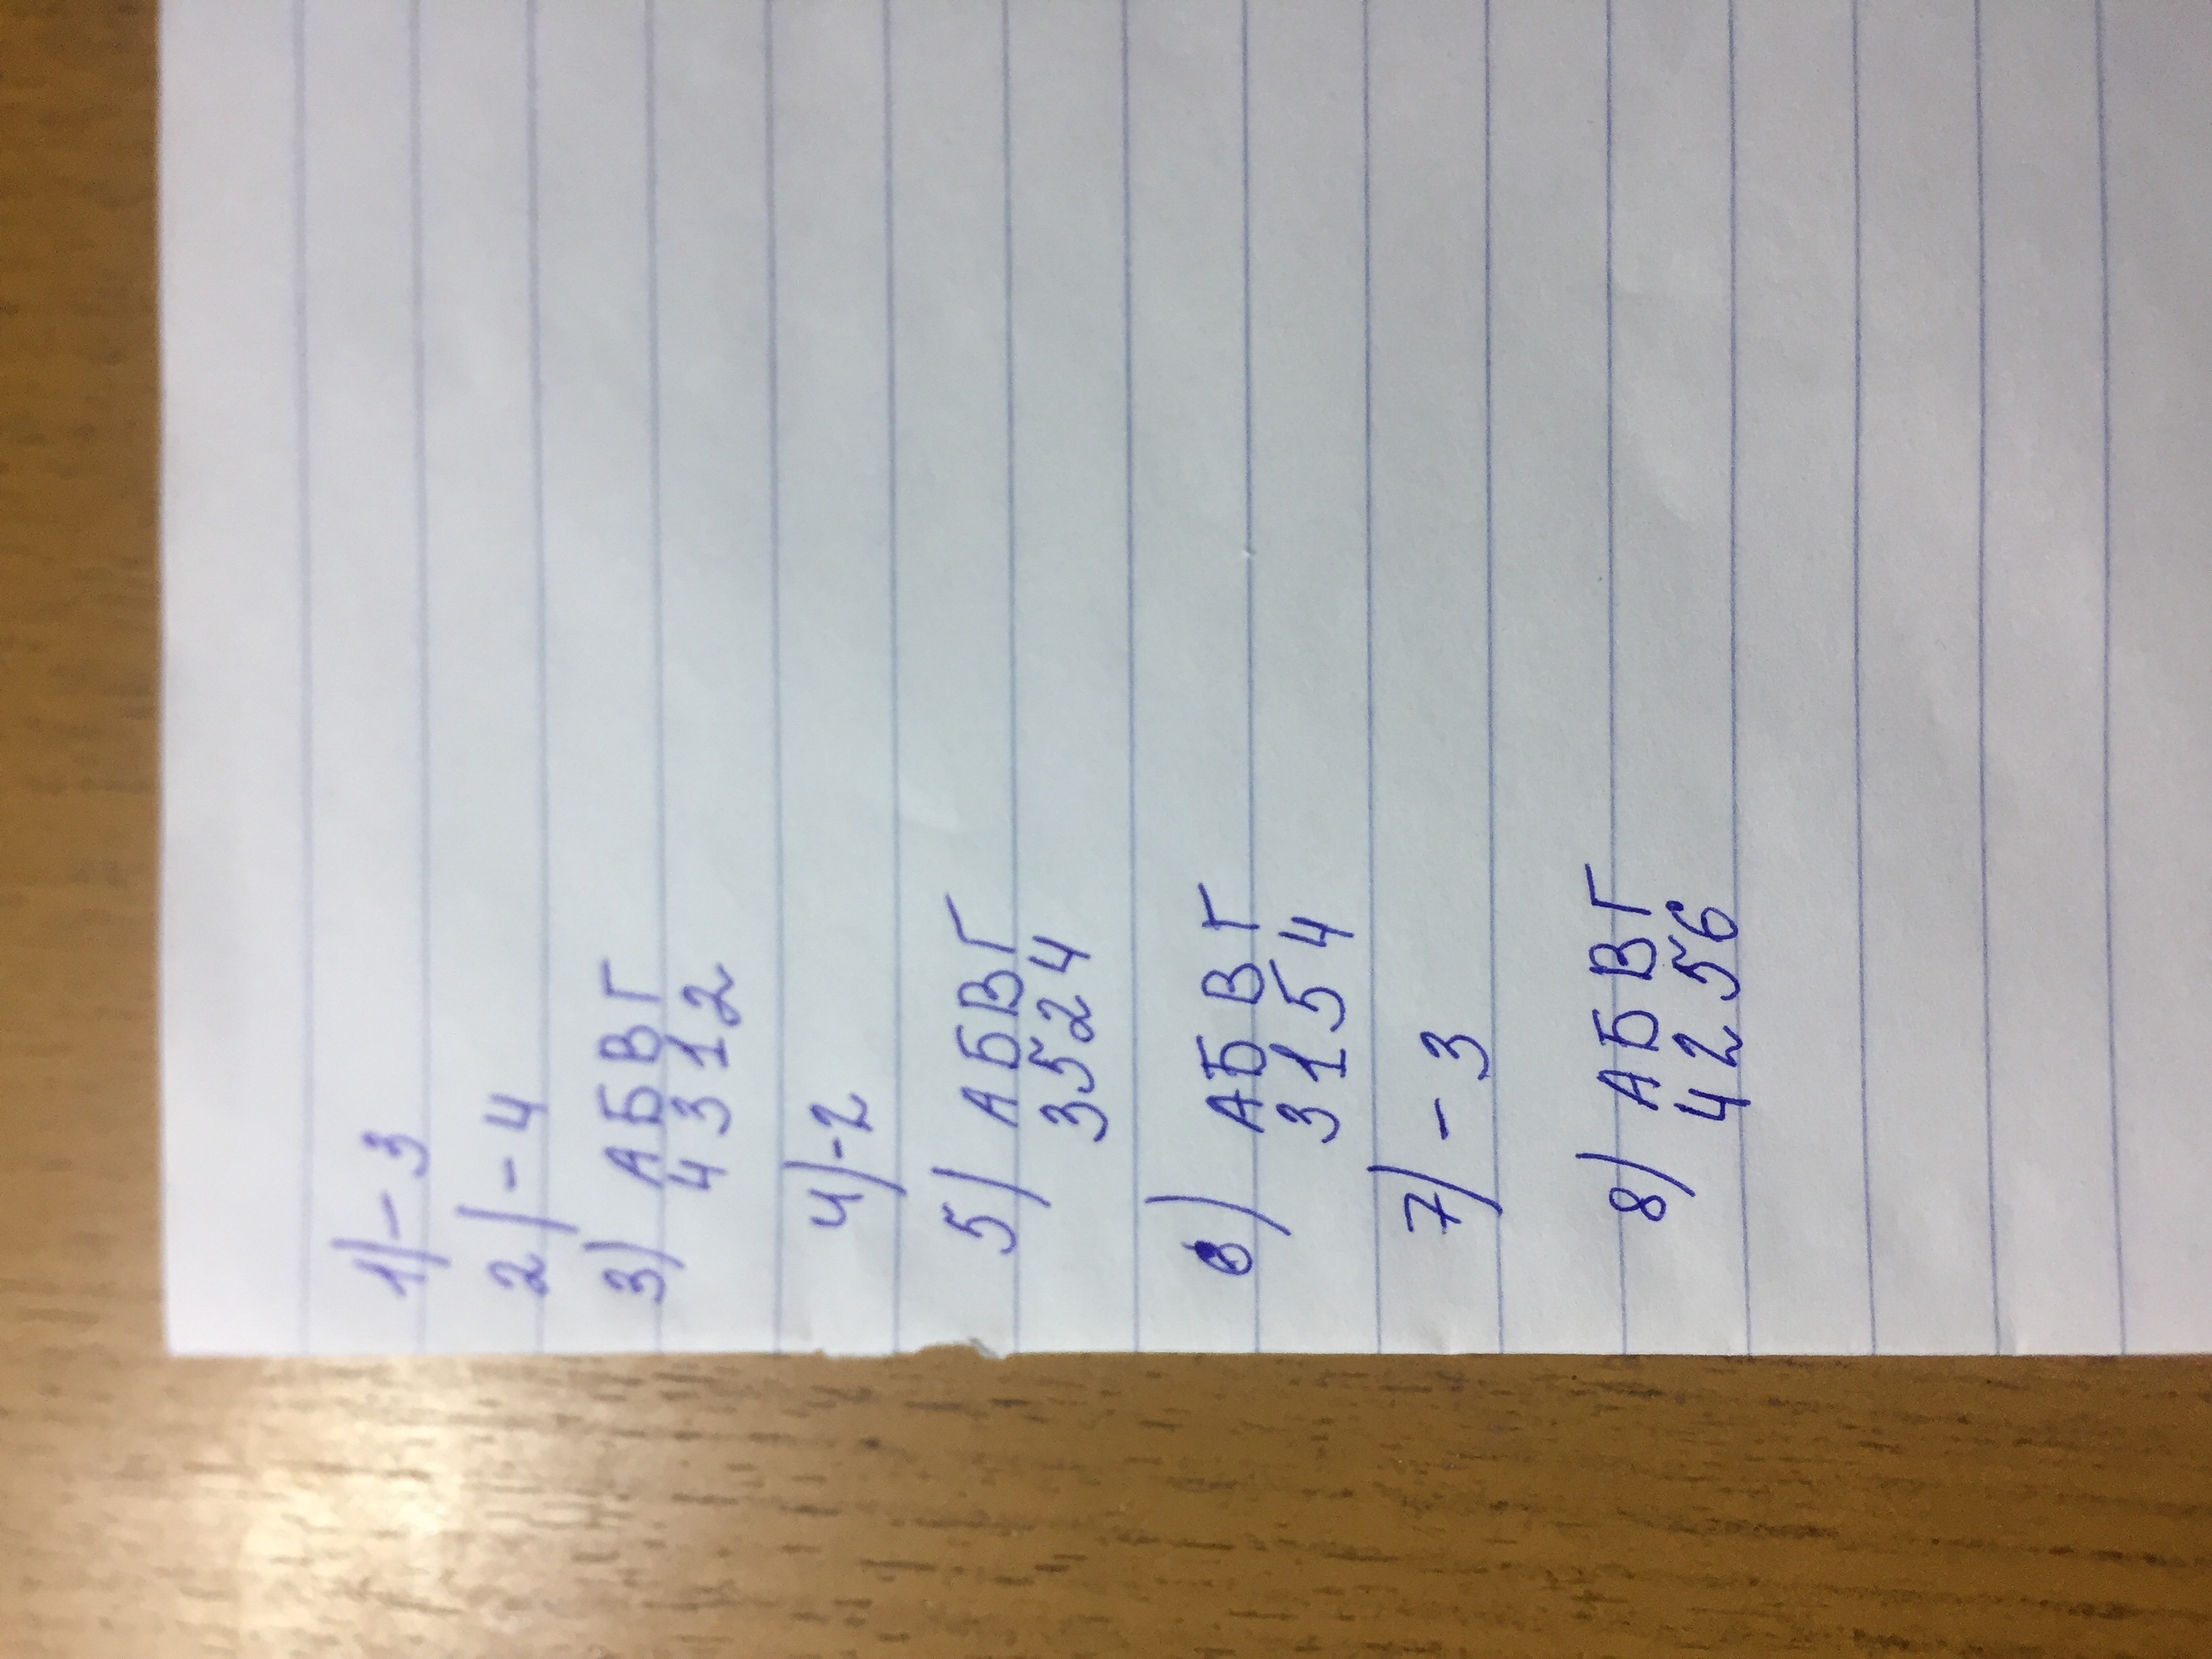 1) - 3
2) - 4
3) А Б В Г
4 3 1 2
4) - 2
5) А Б В Г
3 5 2 4
6) А Б В Г
3 1 5 4
7) - 3
8) А Б В Г
4 2 5 6